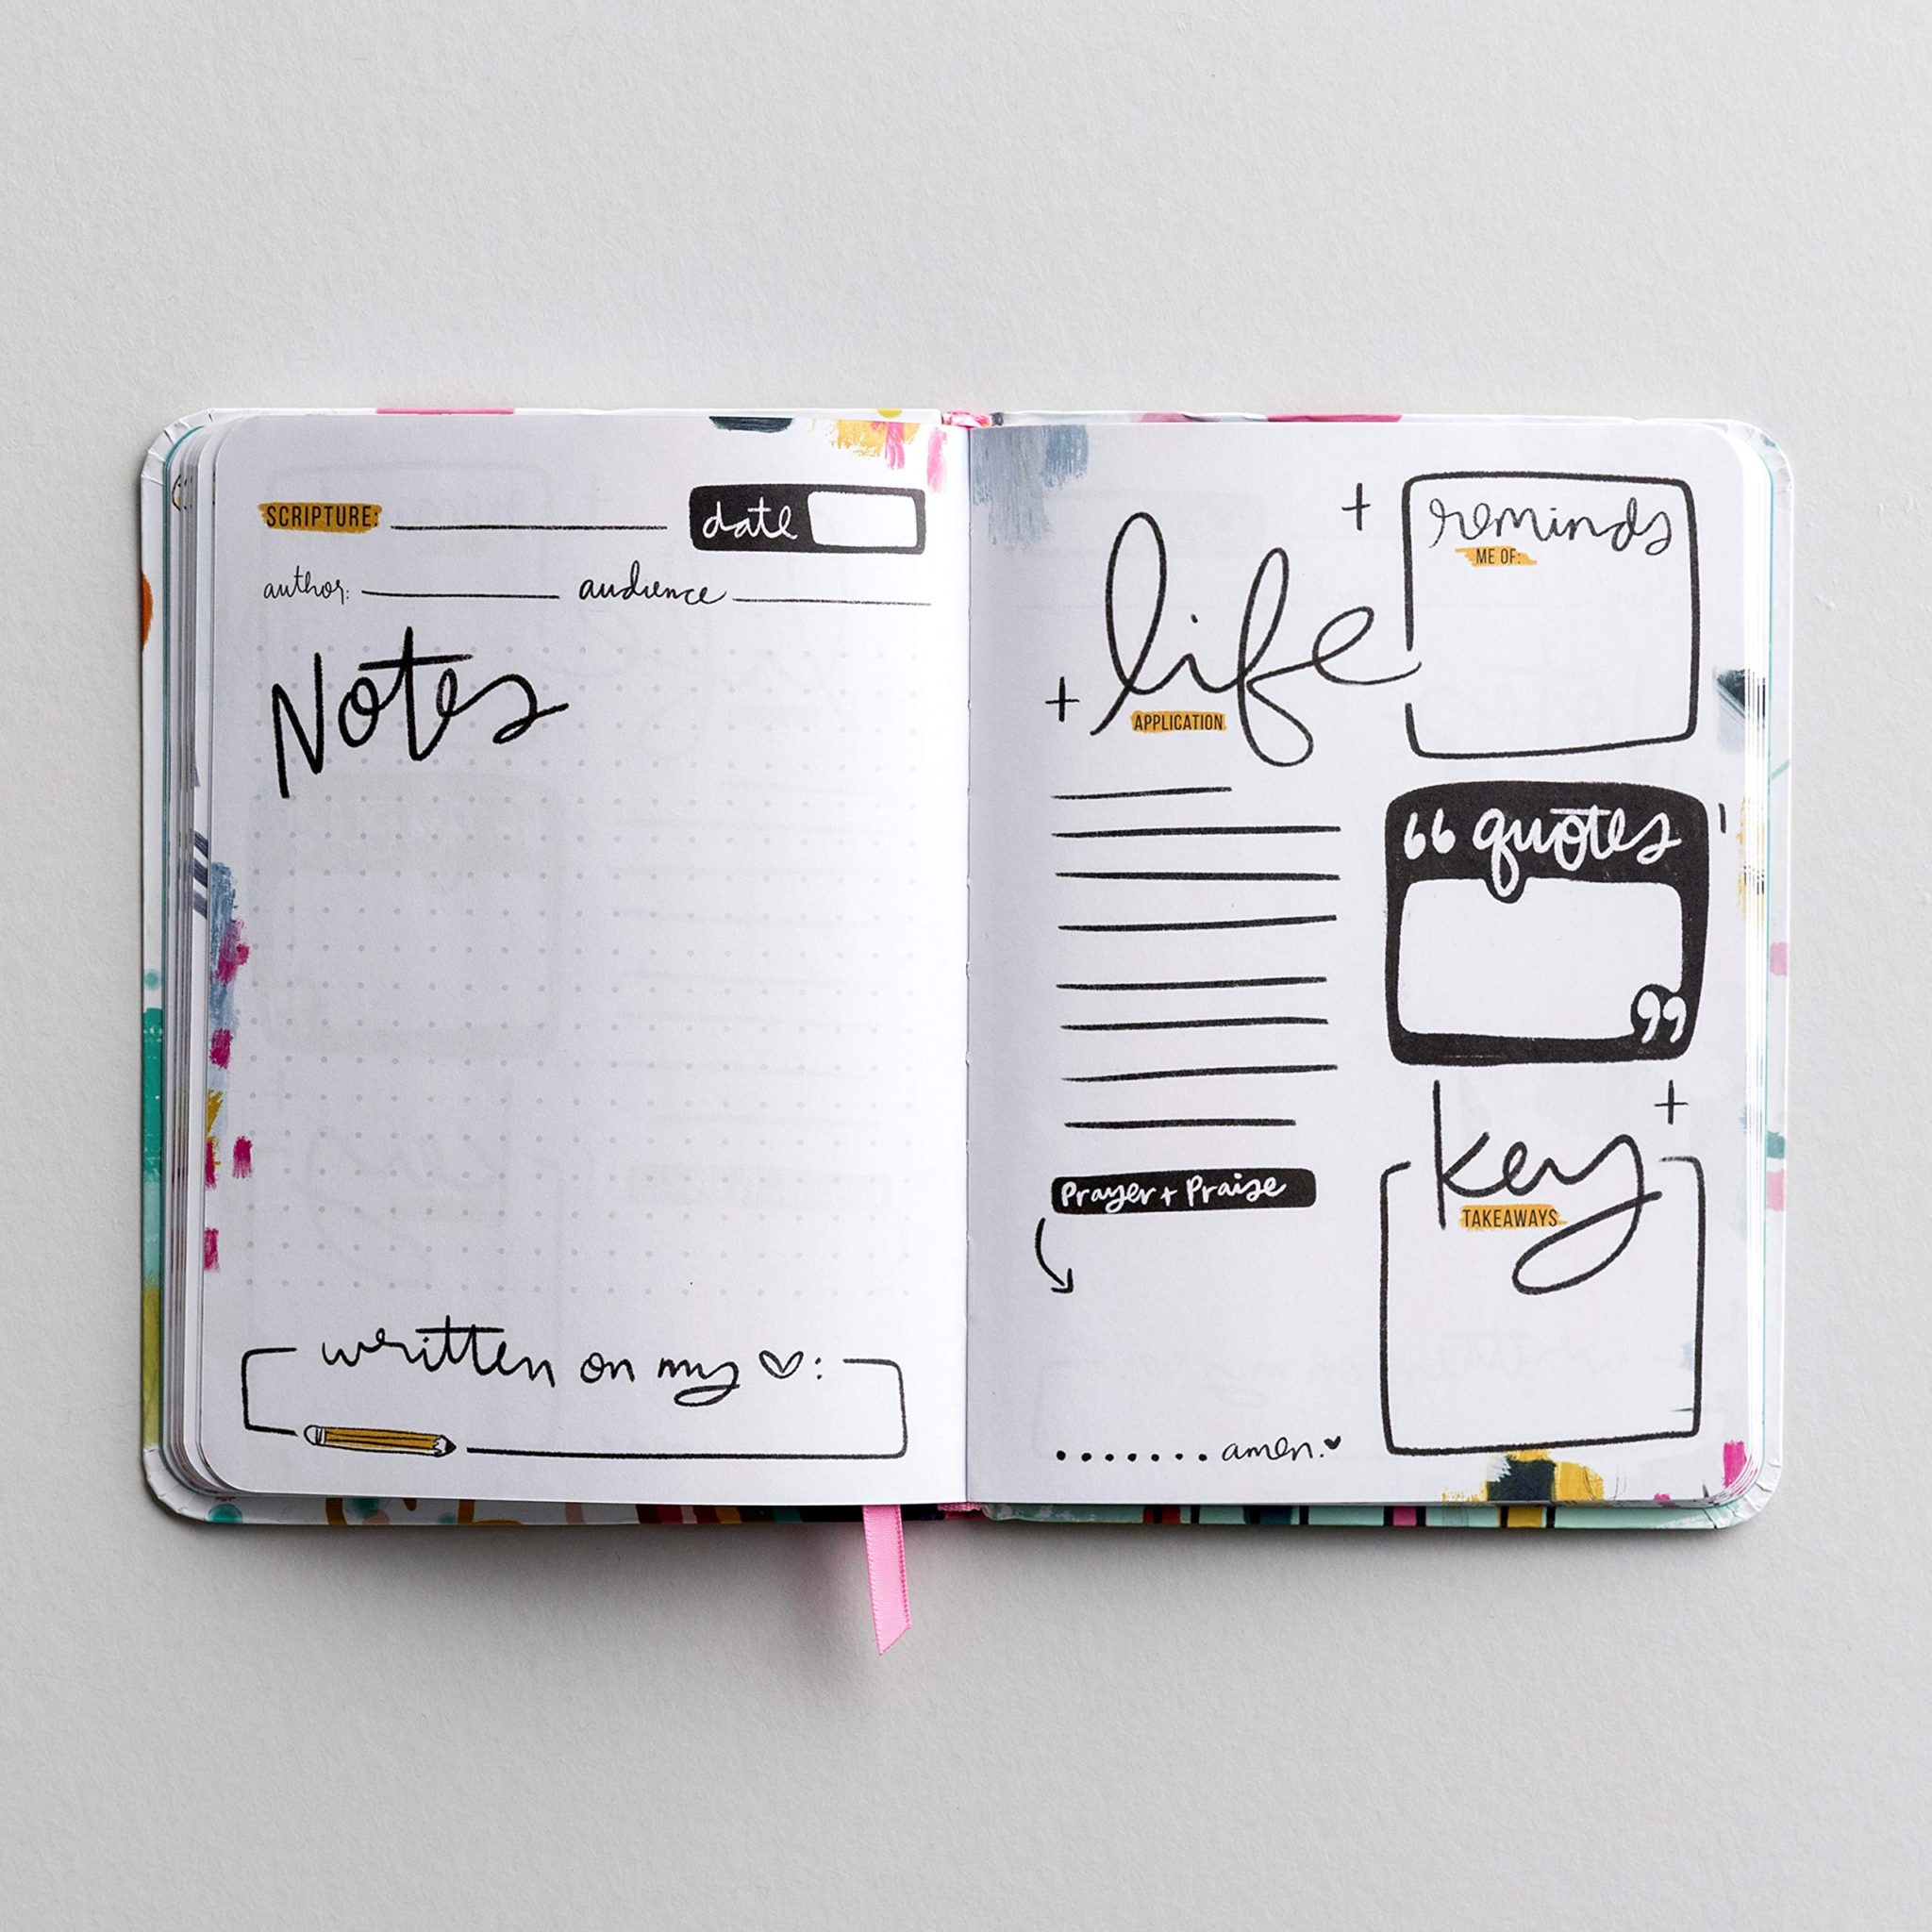 SCRIPTURE: date
author: audience
Notes
written on my ♡:
life
APPLICATION
Prayer + Praise
amen.♥
reminds
ME OF:
“ quotes ”
key
TAKEAWAYS